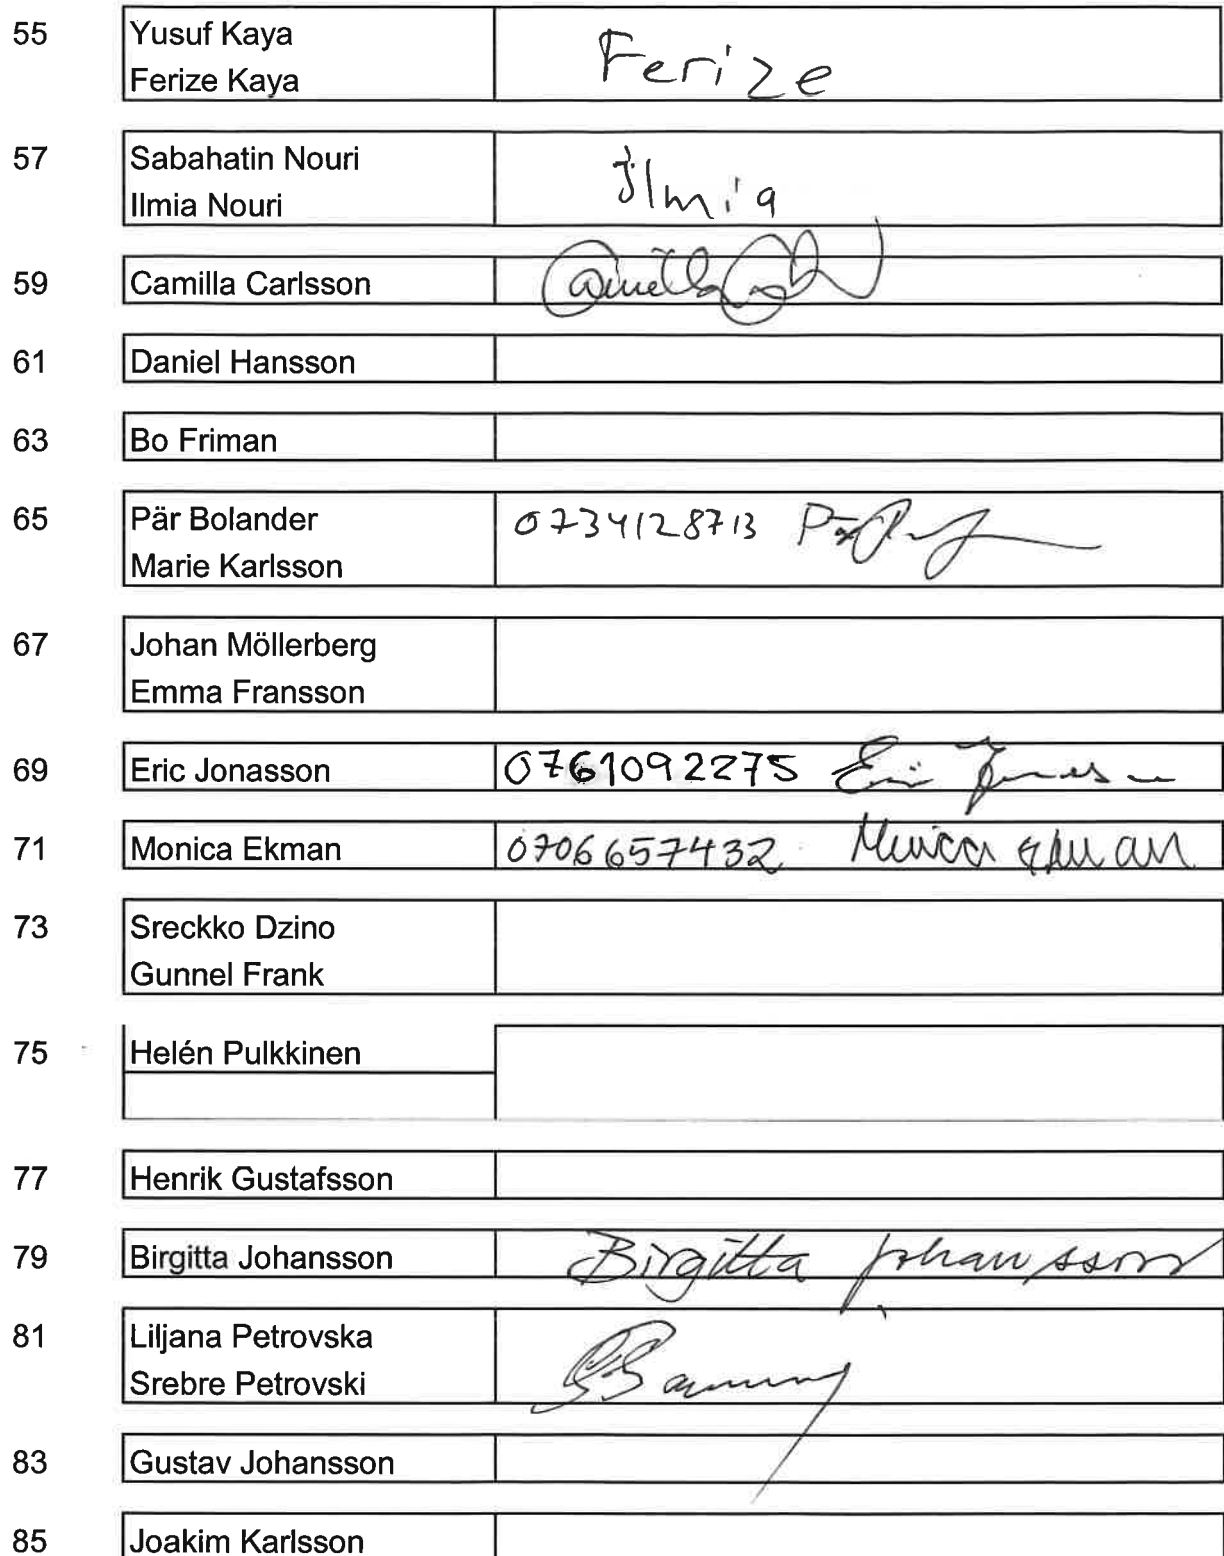 55 Yusuf Kaya Ferize
Ferize Kaya
57 Sabahatin Nouri Ilmia
Ilmia Nouri
59 Camilla Carlsson Camilla
61 Daniel Hansson
63 Bo Friman
65 Pär Bolander 0734128713 Pär
Marie Karlsson
67 Johan Möllerberg
Emma Fransson
69 Eric Jonasson 0761092275 Eric Jonasson
71 Monica Ekman 0706657432 Monica Ekman
73 Sreckko Dzino
Gunnel Frank
75 Helén Pulkkinen
77 Henrik Gustafsson
79 Birgitta Johansson Birgitta Johansson
81 Liljana Petrovska
Srebre Petrovski
83 Gustav Johansson
85 Joakim Karlsson